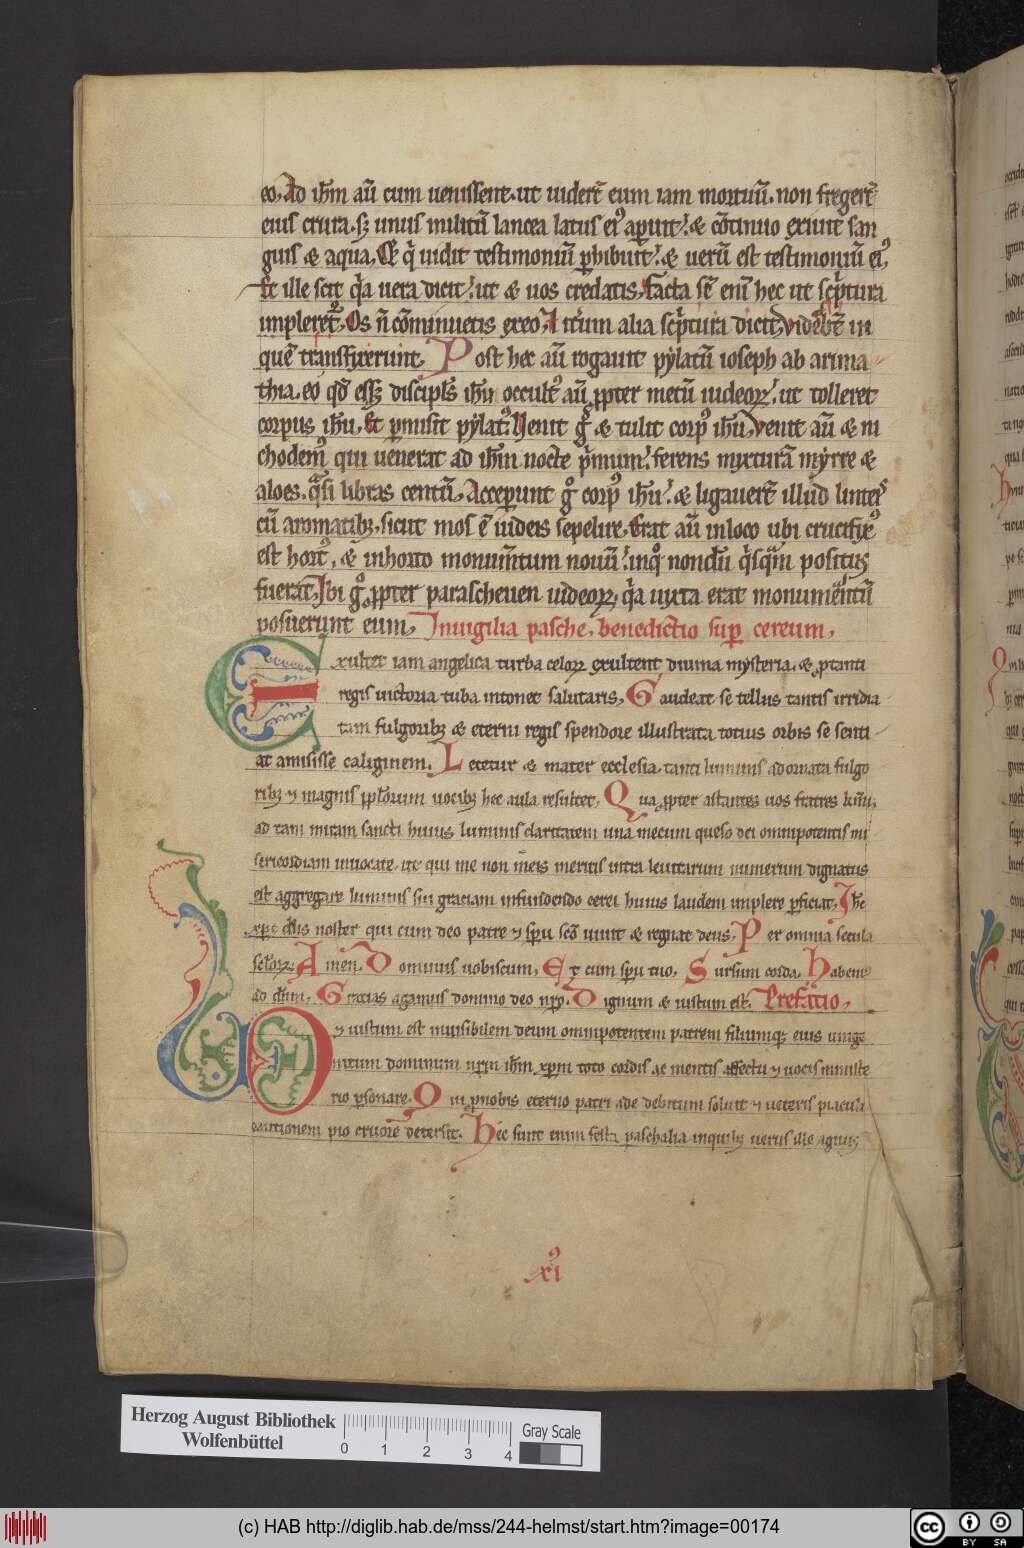 eo. Ad ihm̄ aū cum uenissent. ut uider̄t eum iam mortuū. non freger̄t
eius crura. sꝫ unus militū lancea latus eiꝰ aperuit. & cōtinuo exiuit san
guis & aqua. Et q̇ uidit testimoniū ꝑhibuit. & uerū est testimoniū eiꝰ.
Et ille scit q̇a uera dicit. ut & uos credatis. Facta st̄ eni᷒ hec ut sċptura
impleretᷣ. Os n̄ cōminuetis ex eo. Et it̄um alia sċptura dicit. Videbt̄ in
quē transfixerunt. Post hec aū rogauit pẏlatū ioseph ab arima
thia. eo qd̄ esset discipl̄s ih̄u occultꝰ aū ꝓpter metū iudeoꝝ. ut tolleret
corpus ih̄u. Et ꝑmisit pẏlatꝰ. Venit gͦ & tulit corpꝰ ih̄u. Venit aū & ni
chodemꝰ qui uenerat ad ihm̄ nocte p̄mum. ferens mixturā mẏrre &
aloes. qͣsi libras centū. Acceperunt gͦ corpꝰ ih̄u. & ligauer̄t illud linteis
cū aromatibꝫ. sicut mos ē iudeis sepelire. Erat aū in loco ubi crucifixꝰ
est hortꝰ. & in horto monum̄tum nouū. in qͦ nondū q̇sqͣm positus
fuerat. Ibi gͦ ꝓpter parasceuen iudeoꝝ. q̇a iuxta erat monumentū
posuerunt eum. In uigilia pasche. benedictio suꝑ cereum.
Exultet iam angelica turba celoꝝ exultent diuina mysteria. & ꝓ tanti
regis uictoria tuba intonet salutaris. Gaudeat se tellus tantis irridia
tam fulgoribꝫ & eterni regis spendore illustrata totius orbis se senti
at amisisse caliginem. Letetur & mater ecclesia. tanti luminis adornata fulgo
ribꝫ ⁊ magnis ppl̄orum uocibꝫ hec aula resultet. Qua ꝓpter astantes uos fratres kmi̅.
ad tam miram sancti huius luminis claritatem una mecum queso dei omnipotentis mi
sericordiam inuocate. ut qui me non meis meritis intra leuitarum numerum dignatus
est aggregare luminis sui graciam infundendo cerei huius laudem implere ꝑficiat. Ihc̄
xpc̄ dn̄s noster qui cum deo patre ⁊ spū scō uiuit & regnat deus. Per omnia secula
scl̄oꝝ. Amen. Dominus uobiscum. Et cum spū tuo. Sursum corda. Habem᷒
ad dn̄m. Gracias agamus domino deo nr̄o. Dignum & iustum est. Prefatio.
D ⁊ iustum est inuisibilem deum omnipotentem patrem filiumqꝫ eius unige
nitum dominum nr̄m ihm̄ xpm̄ toto cordis ac mentis affectu ⁊ uocis ministe
rio ꝑsonare. Qui ꝓ nobis eterno patri ade debitum soluit ⁊ ueteris piaculi
cautionem pio cruore detersit. Hec sunt enim festa paschalia in quibꝫ uerus ille agnus
xiꝰ
Herzog August Bibliothek
Wolfenbüttel
0 1 2 3 4
Gray Scale
(c) HAB http://diglib.hab.de/mss/244-helmst/start.htm?image=00174
cc BY SA